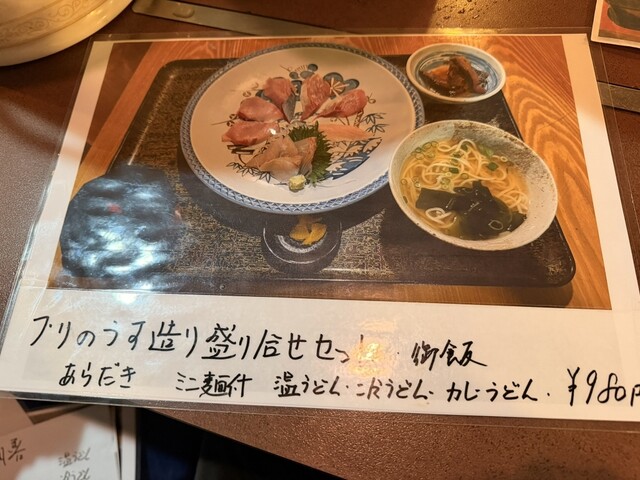 ブリのうす造り盛り合せセット・御飯
あらだき ミニ麺付 温うどん・冷うどん・カレーうどん・¥980円
温うどん